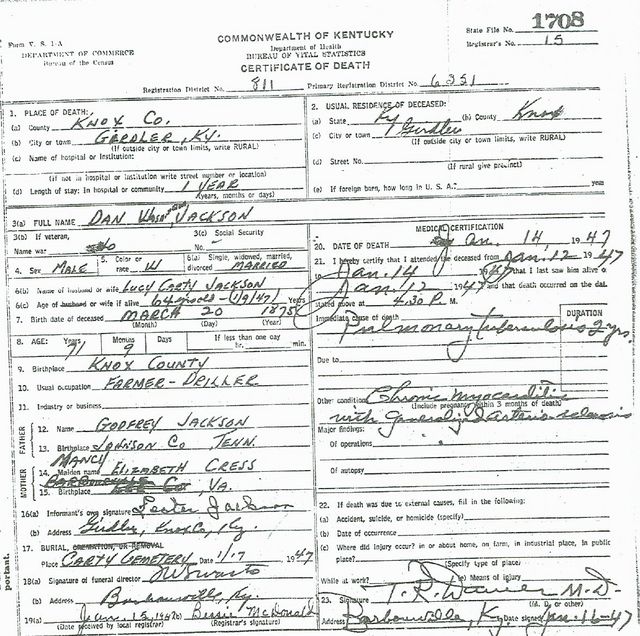 1708
COMMONWEALTH OF KENTUCKY
State File No.
Form V. S. 1-A
Department of Health
Registrar's No. 15
DEPARTMENT OF COMMERCE
BUREAU OF VITAL STATISTICS
Bureau of the Census
CERTIFICATE OF DEATH
Registration District No. 811 Primary Registration District No. 6351
1. PLACE OF DEATH:
(a) County KNOX CO.
(b) City or town GIRDLER, KY.
(If outside city or town limits, write RURAL)
(c) Name of hospital or institution:
(If not in hospital or institution write street number or location)
(d) Length of stay: In hospital or community 1 YEAR
(years, months or days)
2. USUAL RESIDENCE OF DECEASED:
(a) State Ky (b) County Knox
(c) City or town Girdler
(If outside city or town limits, write RURAL)
(d) Street No.
(If rural give precinct)
(e) If foreign born, how long in U. S. A.? year
3(a) FULL NAME DAN JACKSON
3(b) If veteran,
Name war
3(c) Social Security
No. -
4. Sex MALE 5. Color or race W 6(a) Single, widowed, married, divorced MARRIED
6(b) Name of husband or wife LUCY CARTY JACKSON
6(c) Age of husband or wife if alive 64 (1/9/47) Years
7. Birth date of deceased MARCH 20 1875
(Month) (Day) (Year)
8. AGE: Years 71 Months 9 Days If less than one day hr. min.
9. Birthplace KNOX COUNTY
10. Usual occupation FARMER-DRILLER
11. Industry or business
FATHER
12. Name GODFREY JACKSON
13. Birthplace JOHNSON CO TENN.
MOTHER
NANCY
14. Maiden name ELIZABETH CRESS
15. Birthplace VA.
16(a) Informant's own signature Lester Jackson
(b) Address Girdler, Knox Co, Ky.
17. BURIAL, CREMATION, OR REMOVAL
Place CARTY CEMETERY Date 1/17 1947
18(a) Signature of funeral director
(b) Address Barbourville, Ky.
19(a) Jan. 15, 1947 (b) Bessie McDonald
(Date received by local registrar) (Registrar's signature)
MEDICAL CERTIFICATION
20. DATE OF DEATH Jan. 14, 1947
21. I hereby certify that I attended the deceased from Jan. 12 1947
to Jan. 14 1947 that I last saw him alive o
Jan. 12 1947 and that death occurred on the dat
stated above at 4:30 P. M.
DURATION
Immediate cause of death
Pulmonary tuberculosis 2 yrs.
Due to
Other condition Chronic myocarditis
(Include pregnancy within 3 months of death)
with generalized arteriosclerosis
Major findings:
Of operations
Of autopsy
22. If death was due to external causes, fill in the following:
(a) Accident, suicide, or homicide (specify)
(b) Date of occurrence
(c) Where did injury occur? in or about home, on farm, in industrial place, in public
place?
(Specify type of place)
While at work? (e) Means of injury
23. Signature T. R. M.D.
(M. D. or other)
Address Barbourville, Ky Date signed Jan. 16-47
portant.